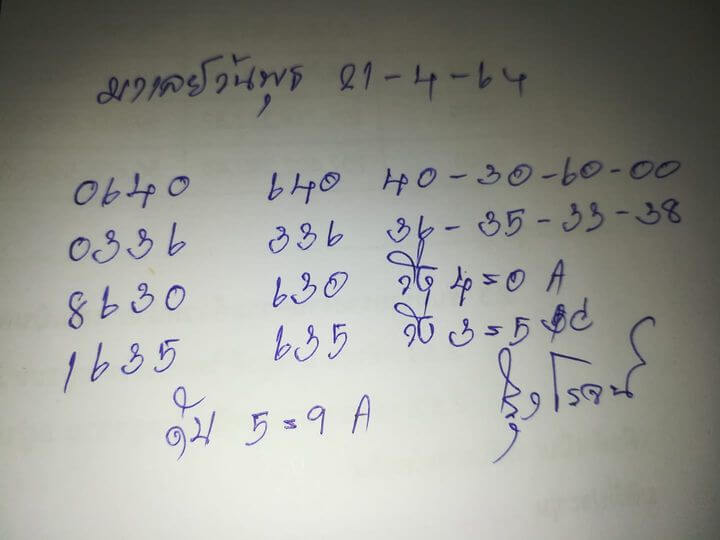 มาเลย์วันพุธ 21-4-64
0640 640 40-30-60-00
0336 336 36-35-33-38
8630 630 วิ่ง 4=0 A
1635 635 วิ่ง 3=5
5=9 A